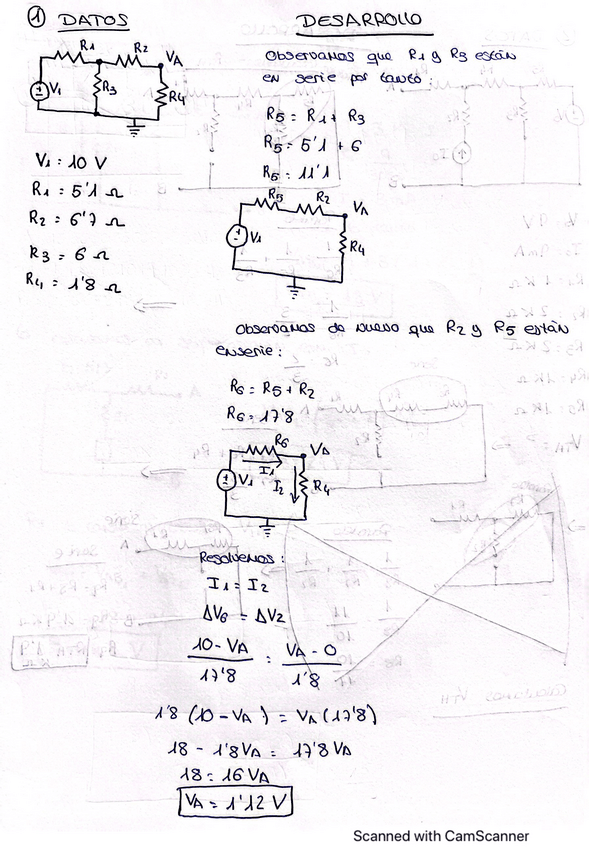 ① DATOS
DESARROLLO
R1
R2
VA
V1
R3
R4
Observamos que R1 y R3 están
en serie por tanto:
R5 = R1 + R3
R5 = 5'1 + 6
R5 = 11'1
V1 = 10 V
R1 = 5'1 Ω
R2 = 6'7 Ω
R3 = 6 Ω
R4 = 1'8 Ω
R5
R2
VA
V1
R4
Observamos de nuevo que R2 y R5 están
en serie:
R6 = R5 + R2
R6 = 17'8
R6
VA
I1
V1
I2
R4
Resolvemos:
I1 = I2
ΔV6 = ΔV2
10 - VA / 17'8 = VA - 0 / 1'8
1'8 (10 - VA) = VA (17'8)
18 - 1'8 VA = 17'8 VA
18 = 16 VA
VA = 1'12 V
Scanned with CamScanner